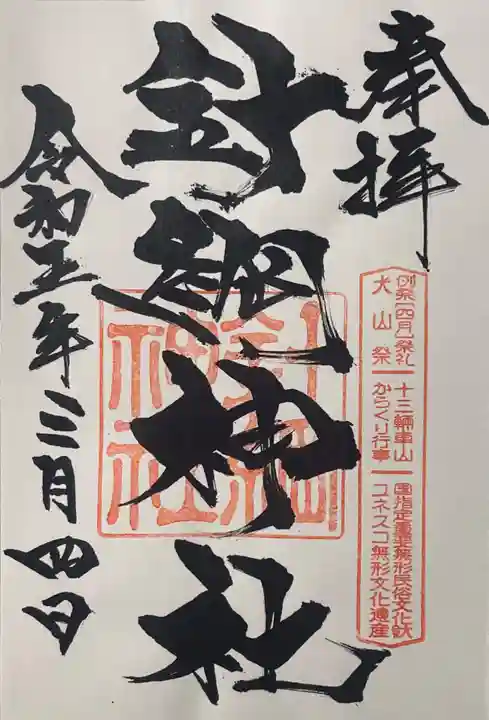 奉拝
例祭[四月]祭礼
犬山祭
十三輌車山
からくり行事
国指定重要無形民俗文化財
ユネスコ無形文化遺産
針綱神社
針綱神社
令和五年三月四日